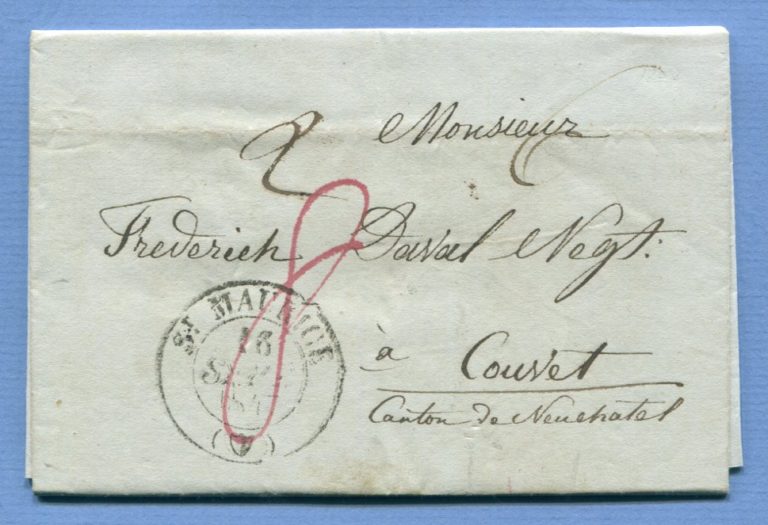 2 Monsieur
Frederich Daval Negt:
8
à Couvet
Canton de Neuchatel
ST MAURICE
16
SEPT